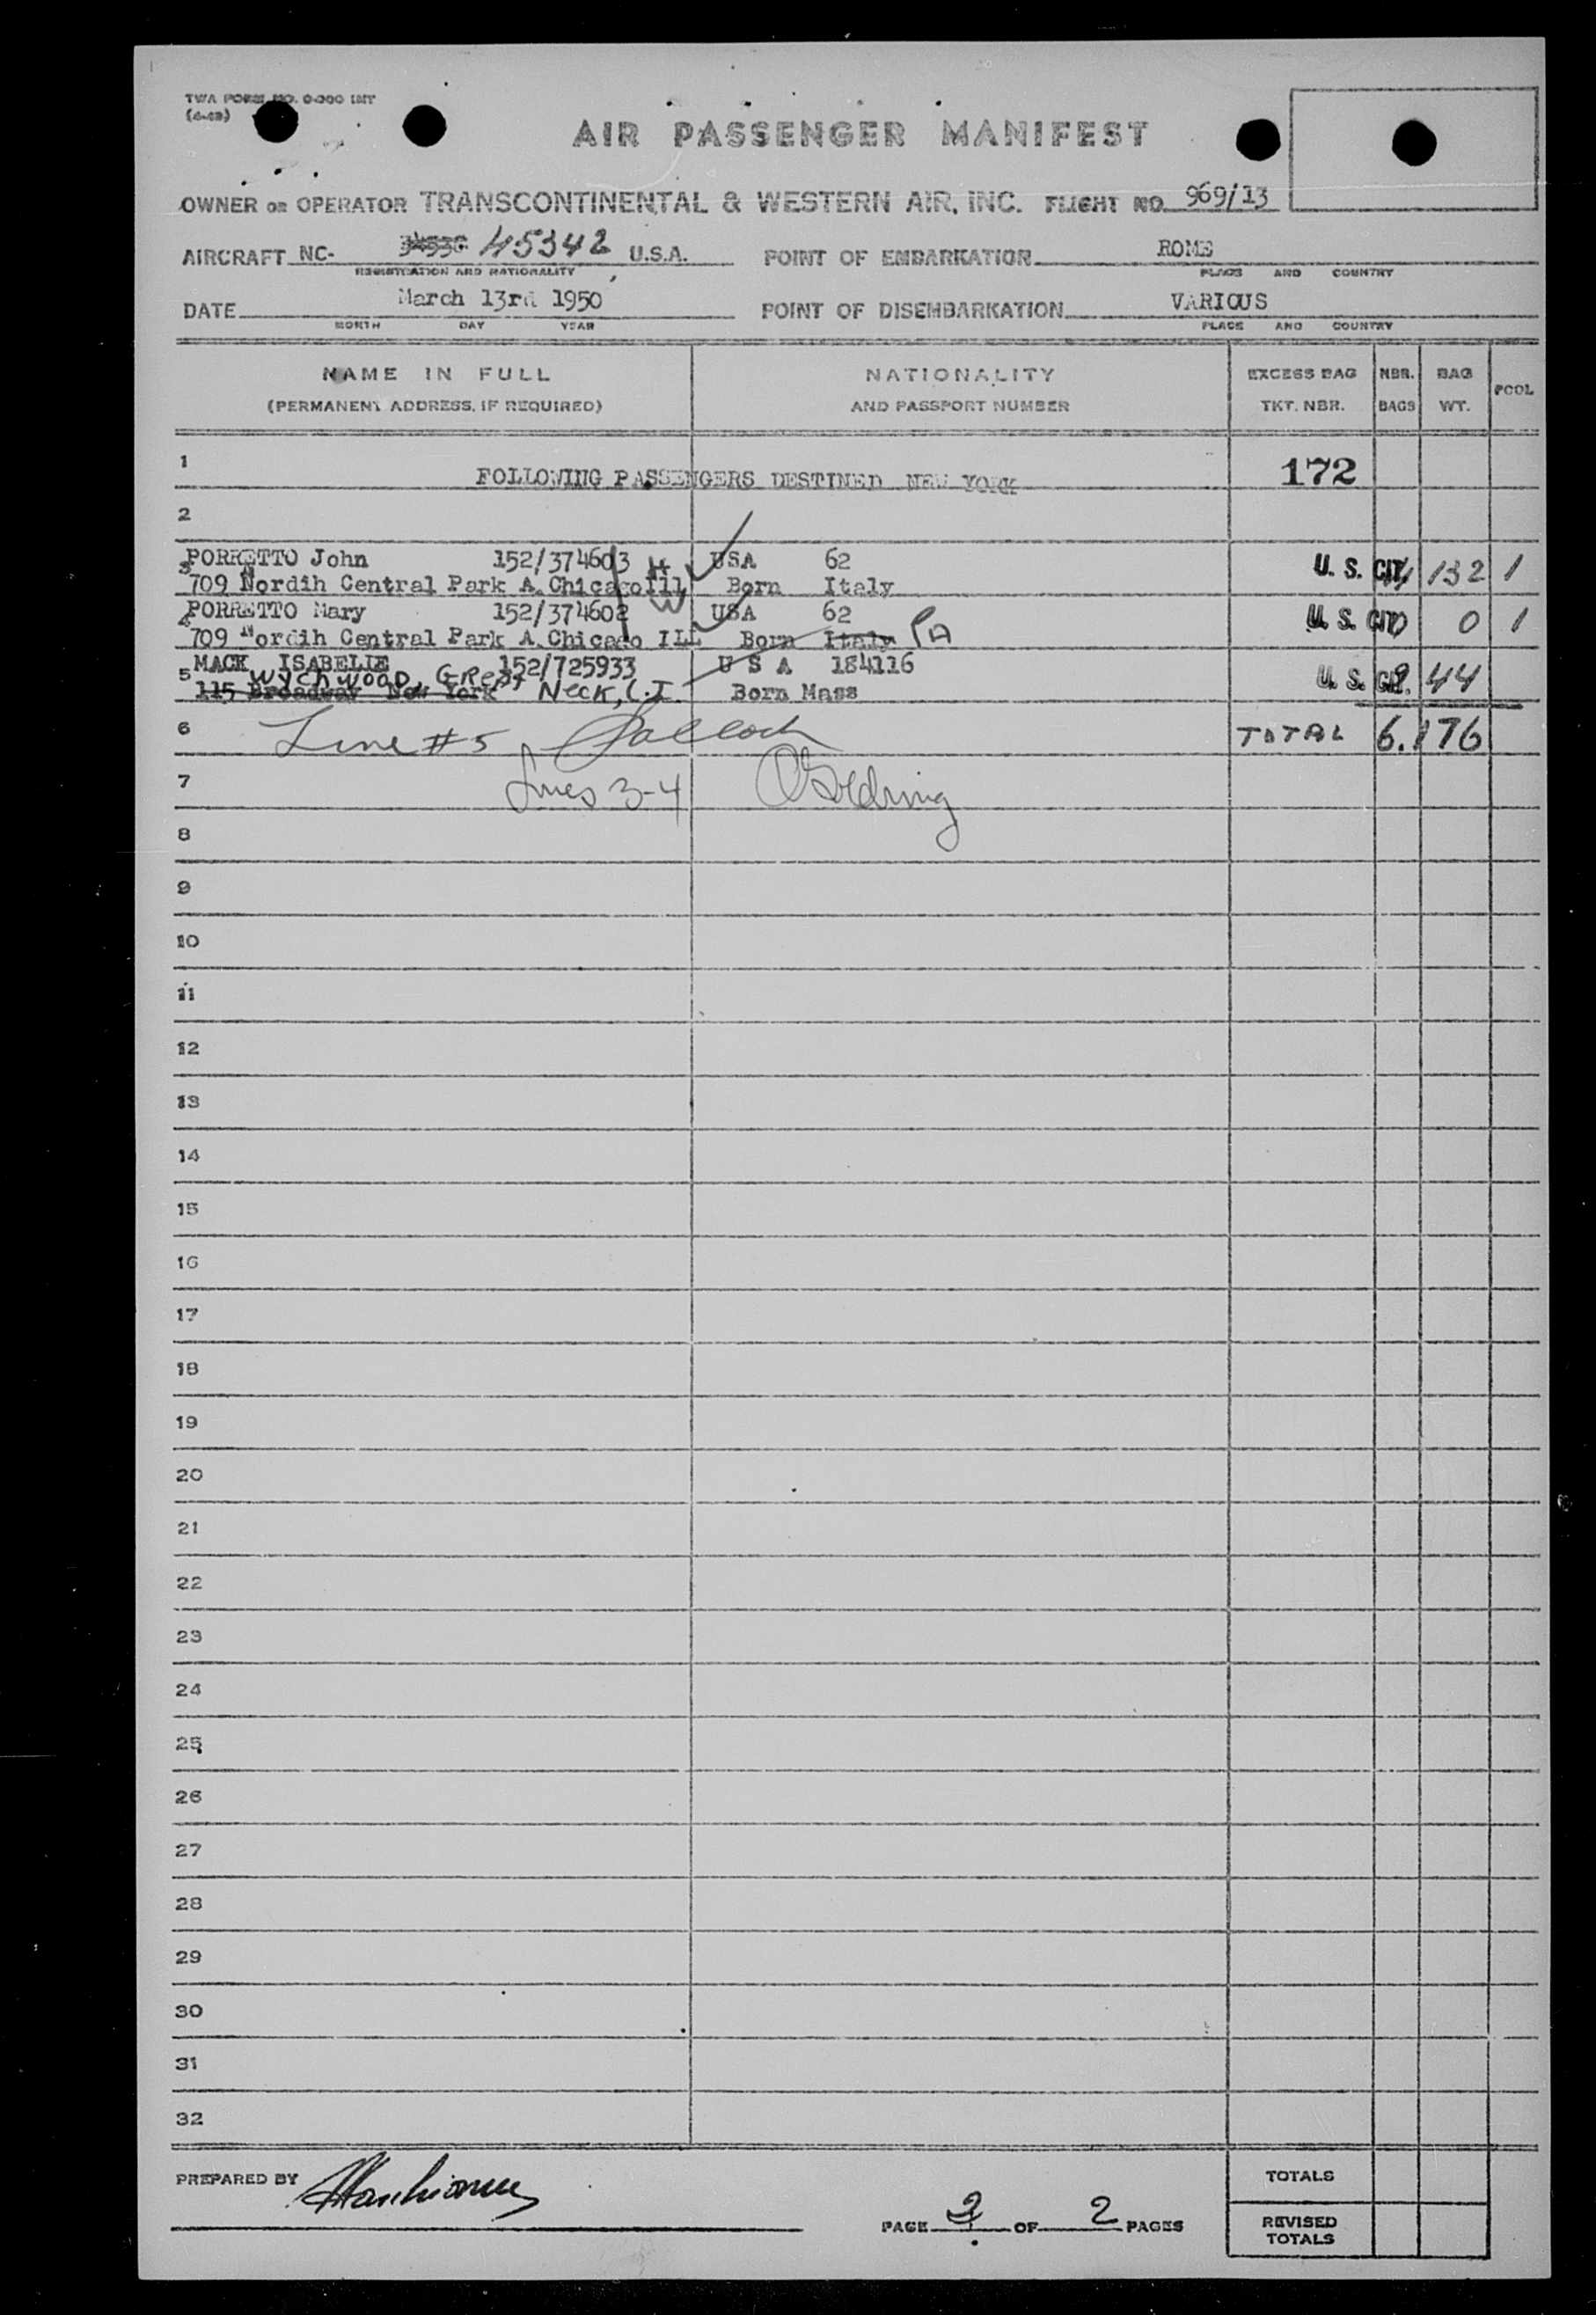 TWA FORM NO. 0-200 INT
(4-48)
AIR PASSENGER MANIFEST
OWNER OR OPERATOR TRANSCONTINENTAL & WESTERN AIR, INC. FLIGHT NO. 969/13
AIRCRAFT NC- 45342 U.S.A. POINT OF EMBARKATION ROME
REGISTRATION AND NATIONALITY PLACE AND COUNTRY
DATE March 13rd 1950 POINT OF DISEMBARKATION VARIOUS
MONTH DAY YEAR PLACE AND COUNTRY
NAME IN FULL NATIONALITY EXCESS BAG NBR. BAG POOL
(PERMANENT ADDRESS, IF REQUIRED) AND PASSPORT NUMBER TKT. NBR. BAGS WT.
1 FOLLOWING PASSENGERS DESTINED NEW YORK 172
2
3 PORRETTO John 152/374603 H USA 62 U. S. CIT. 4 132 1
709 Nordih Central Park A. Chicago Ill W Born Italy
4 PORRETTO Mary 152/374602 USA 62 U. S. CIT 0 0 1
709 Nordih Central Park A. Chicago ILL Born Italy PA
5 MACK ISABELLE 152/725933 U S A 184116 U. S. CIT. 2 44
Wychwood, GREAT NECK, L.I.
115 Broadway New York Born Mass
6 Line #5 TOTAL 6. 176
7 Lines 3-4
8
9
10
11
12
13
14
15
16
17
18
19
20
21
22
23
24
25
26
27
28
29
30
31
32
PREPARED BY TOTALS
PAGE 2 OF 2 PAGES REVISED
TOTALS